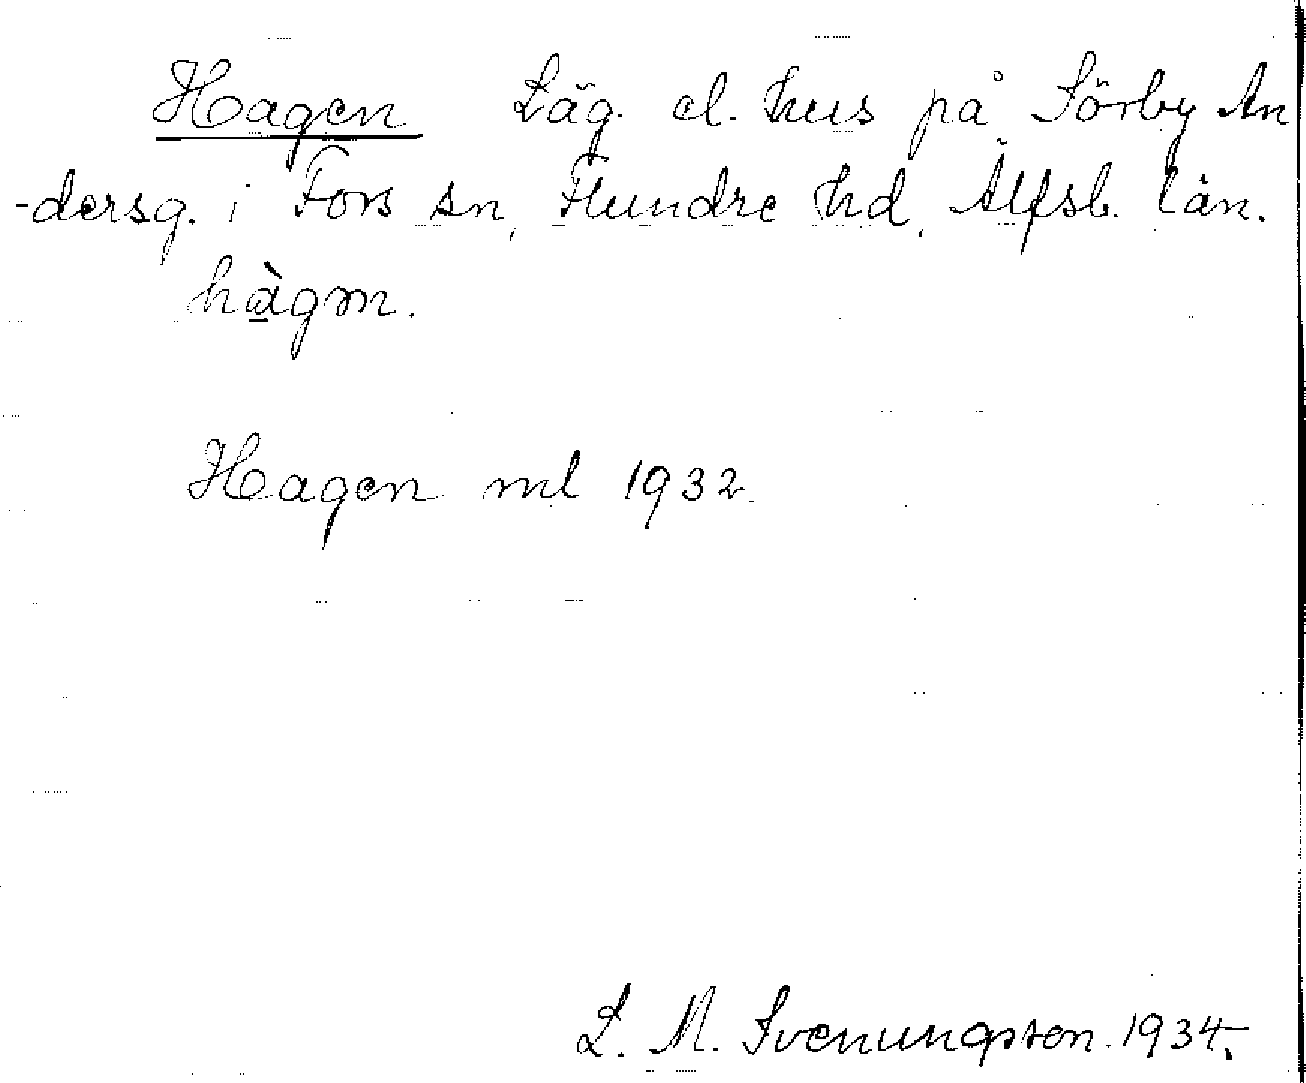 Hagen Läg. el. hus på Sörby An
-dersg. i Fors sn, Flundre hd, Älfsb. län.
hàgm.
Hagen ml 1932.
L. M. Svenungsson. 1934.